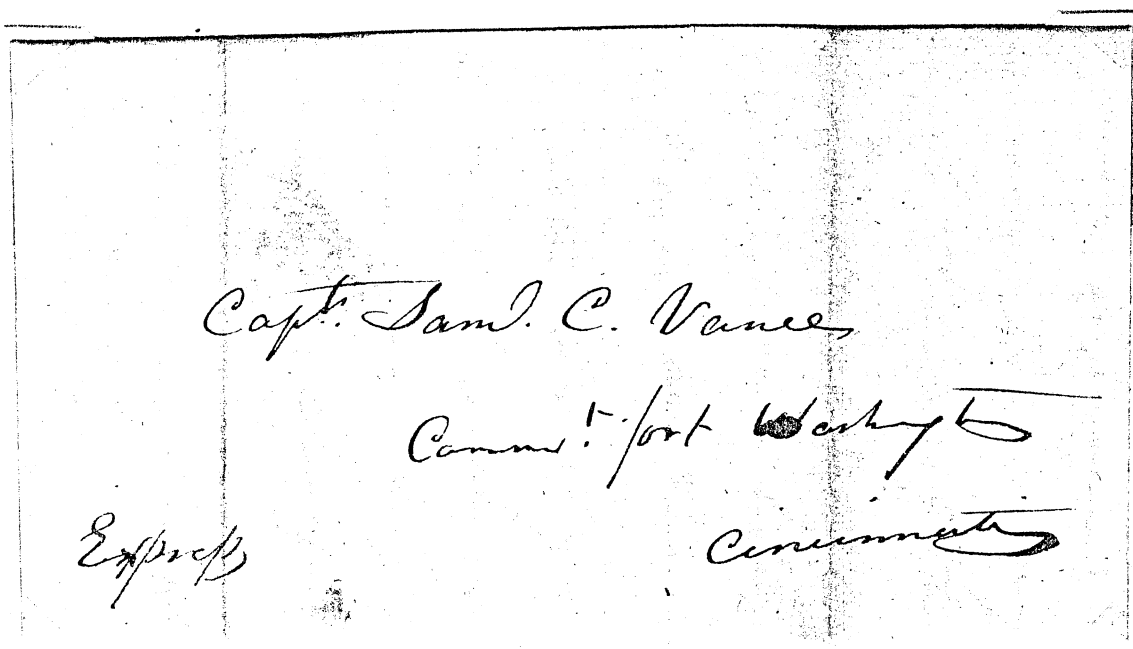 Capt. Saml. C. Vance
Commt. fort Washingt
Cincinnati
Express